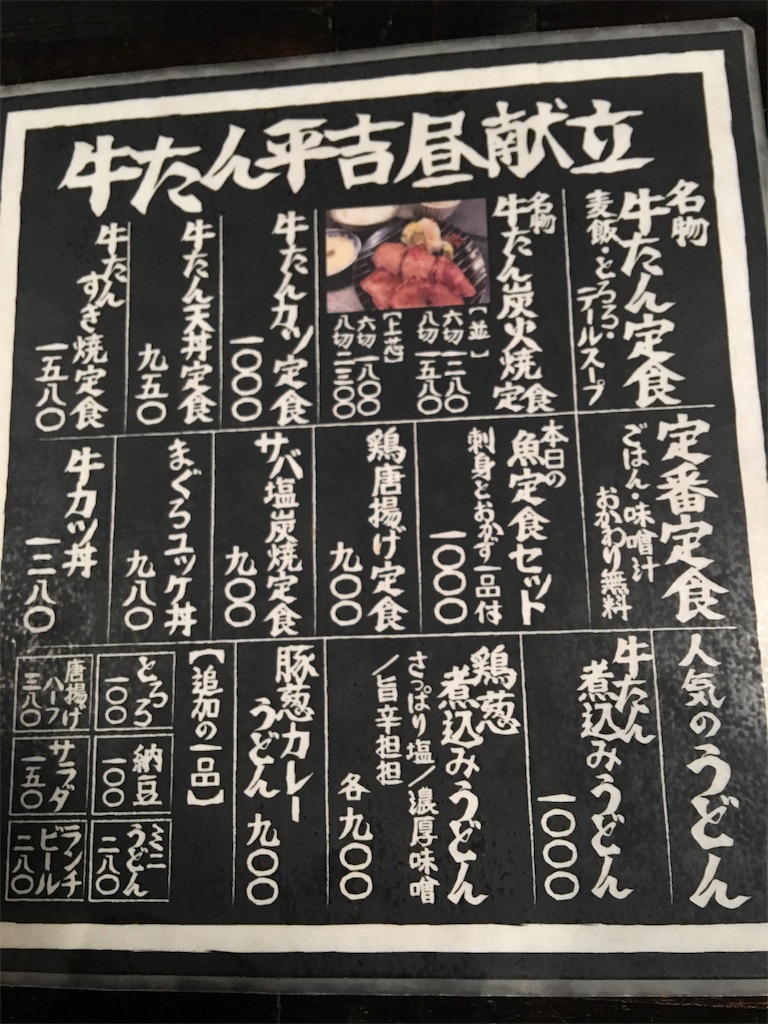 牛たん平吉昼献立
名物
牛たん定食
麦飯・とろろ・
テールスープ
名物
牛たん炭火焼定食
【並】
六切 一二八〇
八切 一五八〇
【上芯】
六切 一八〇〇
八切 二三〇〇
牛たんカツ定食
一〇〇〇
牛たん天丼定食
九五〇
牛たん
すき焼定食
一五八〇
定番定食
ごはん・味噌汁
おかわり無料
本日の
魚定食セット
刺身とおかず一品付
一〇〇〇
鶏唐揚げ定食
九〇〇
サバ塩炭焼定食
九〇〇
まぐろユッケ丼
九八〇
牛カツ丼
一二八〇
人気のうどん
牛たん
煮込みうどん
一〇〇〇
鶏葱
煮込みうどん
さっぱり塩/濃厚味噌
/旨辛担担
各九〇〇
豚葱カレー
うどん 九〇〇
【追加の一品】
とろろ
一〇〇
納豆
一〇〇
ミニ
うどん
二八〇
唐揚げ
ハーフ
三八〇
サラダ
一五〇
ランチ
ビール
二八〇